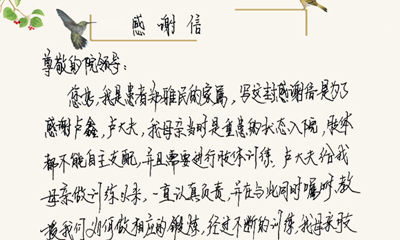 感谢信
尊敬的院领导：
您好，我是患者郑雅民的家属，写这封感谢信是为了
感谢卢鑫，卢大夫，我母亲当时是重患的状态入院，肢体
都不能自主支配，并且需要进行肢体训练。卢大夫给我
母亲做训练以来，一直认真负责，并在与此同时嘱咐、教
我们如何做相应的锻炼，经过不断的训练，我母亲肢